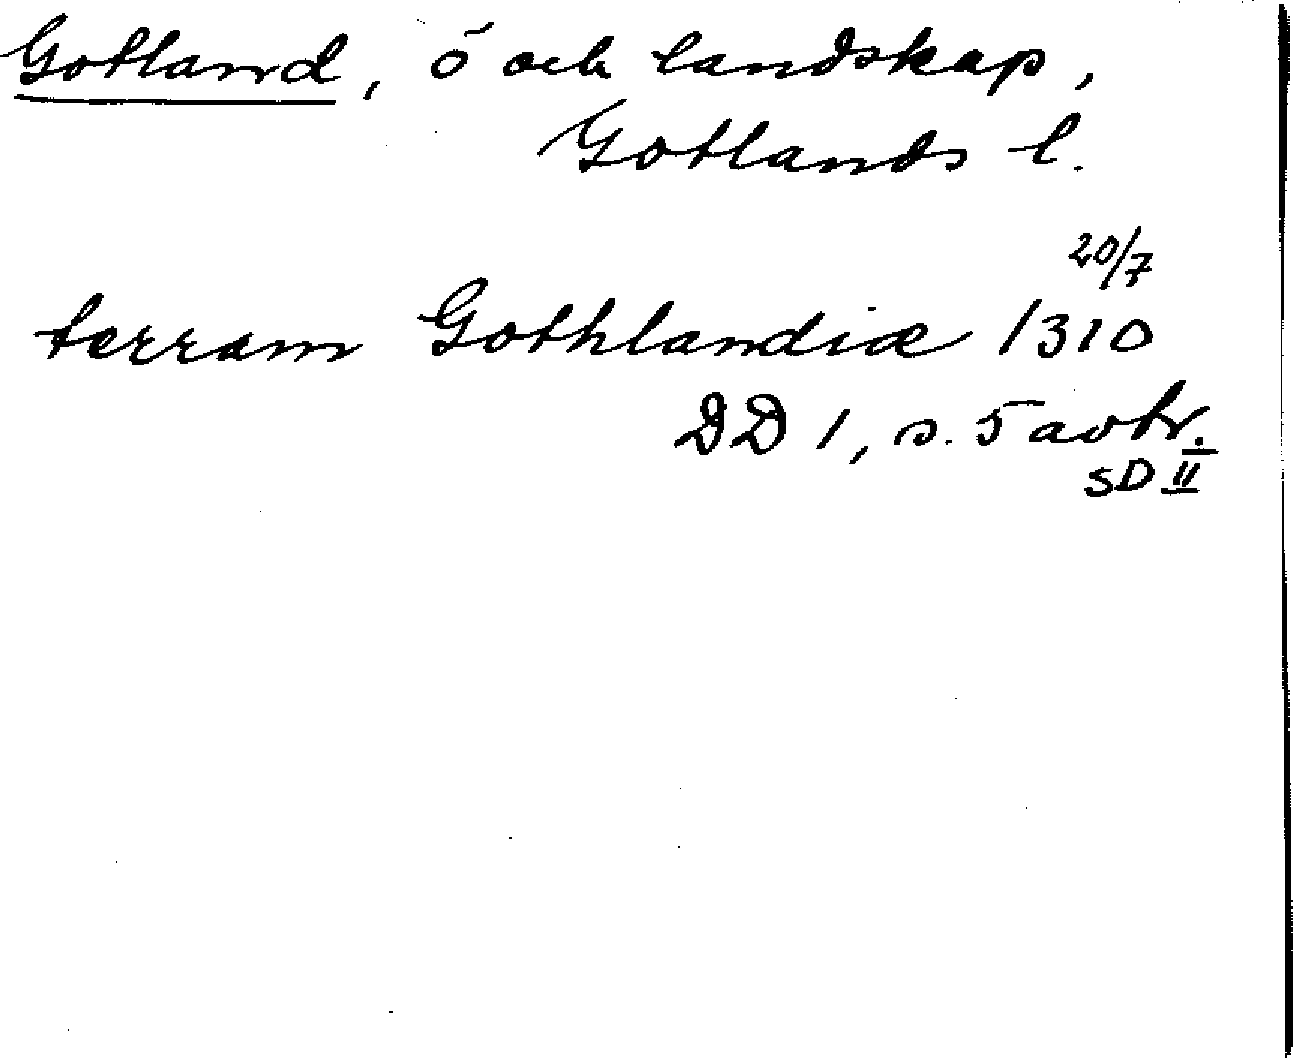 Gotland, ö och landskap,
Gotlands l.
20/7
terram Gothlandiæ 1310
DD 1, s. 5 avtr.
SD II